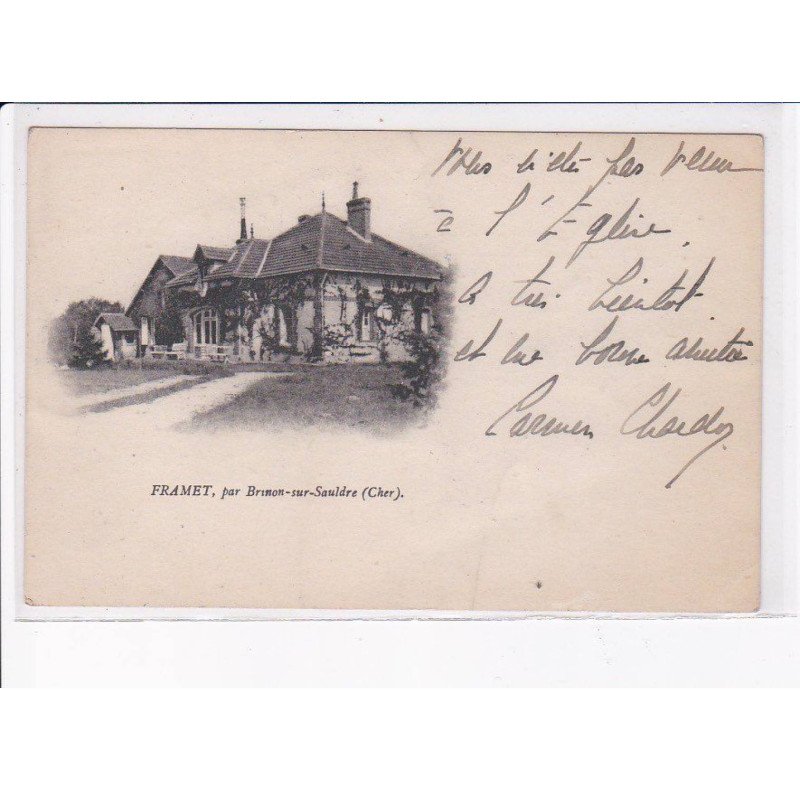 Vous n'êtes pas venu
à l'Église
a très bientôt
et une bonne amitié
Carmen
FRAMET, par Brinon-sur-Sauldre (Cher).